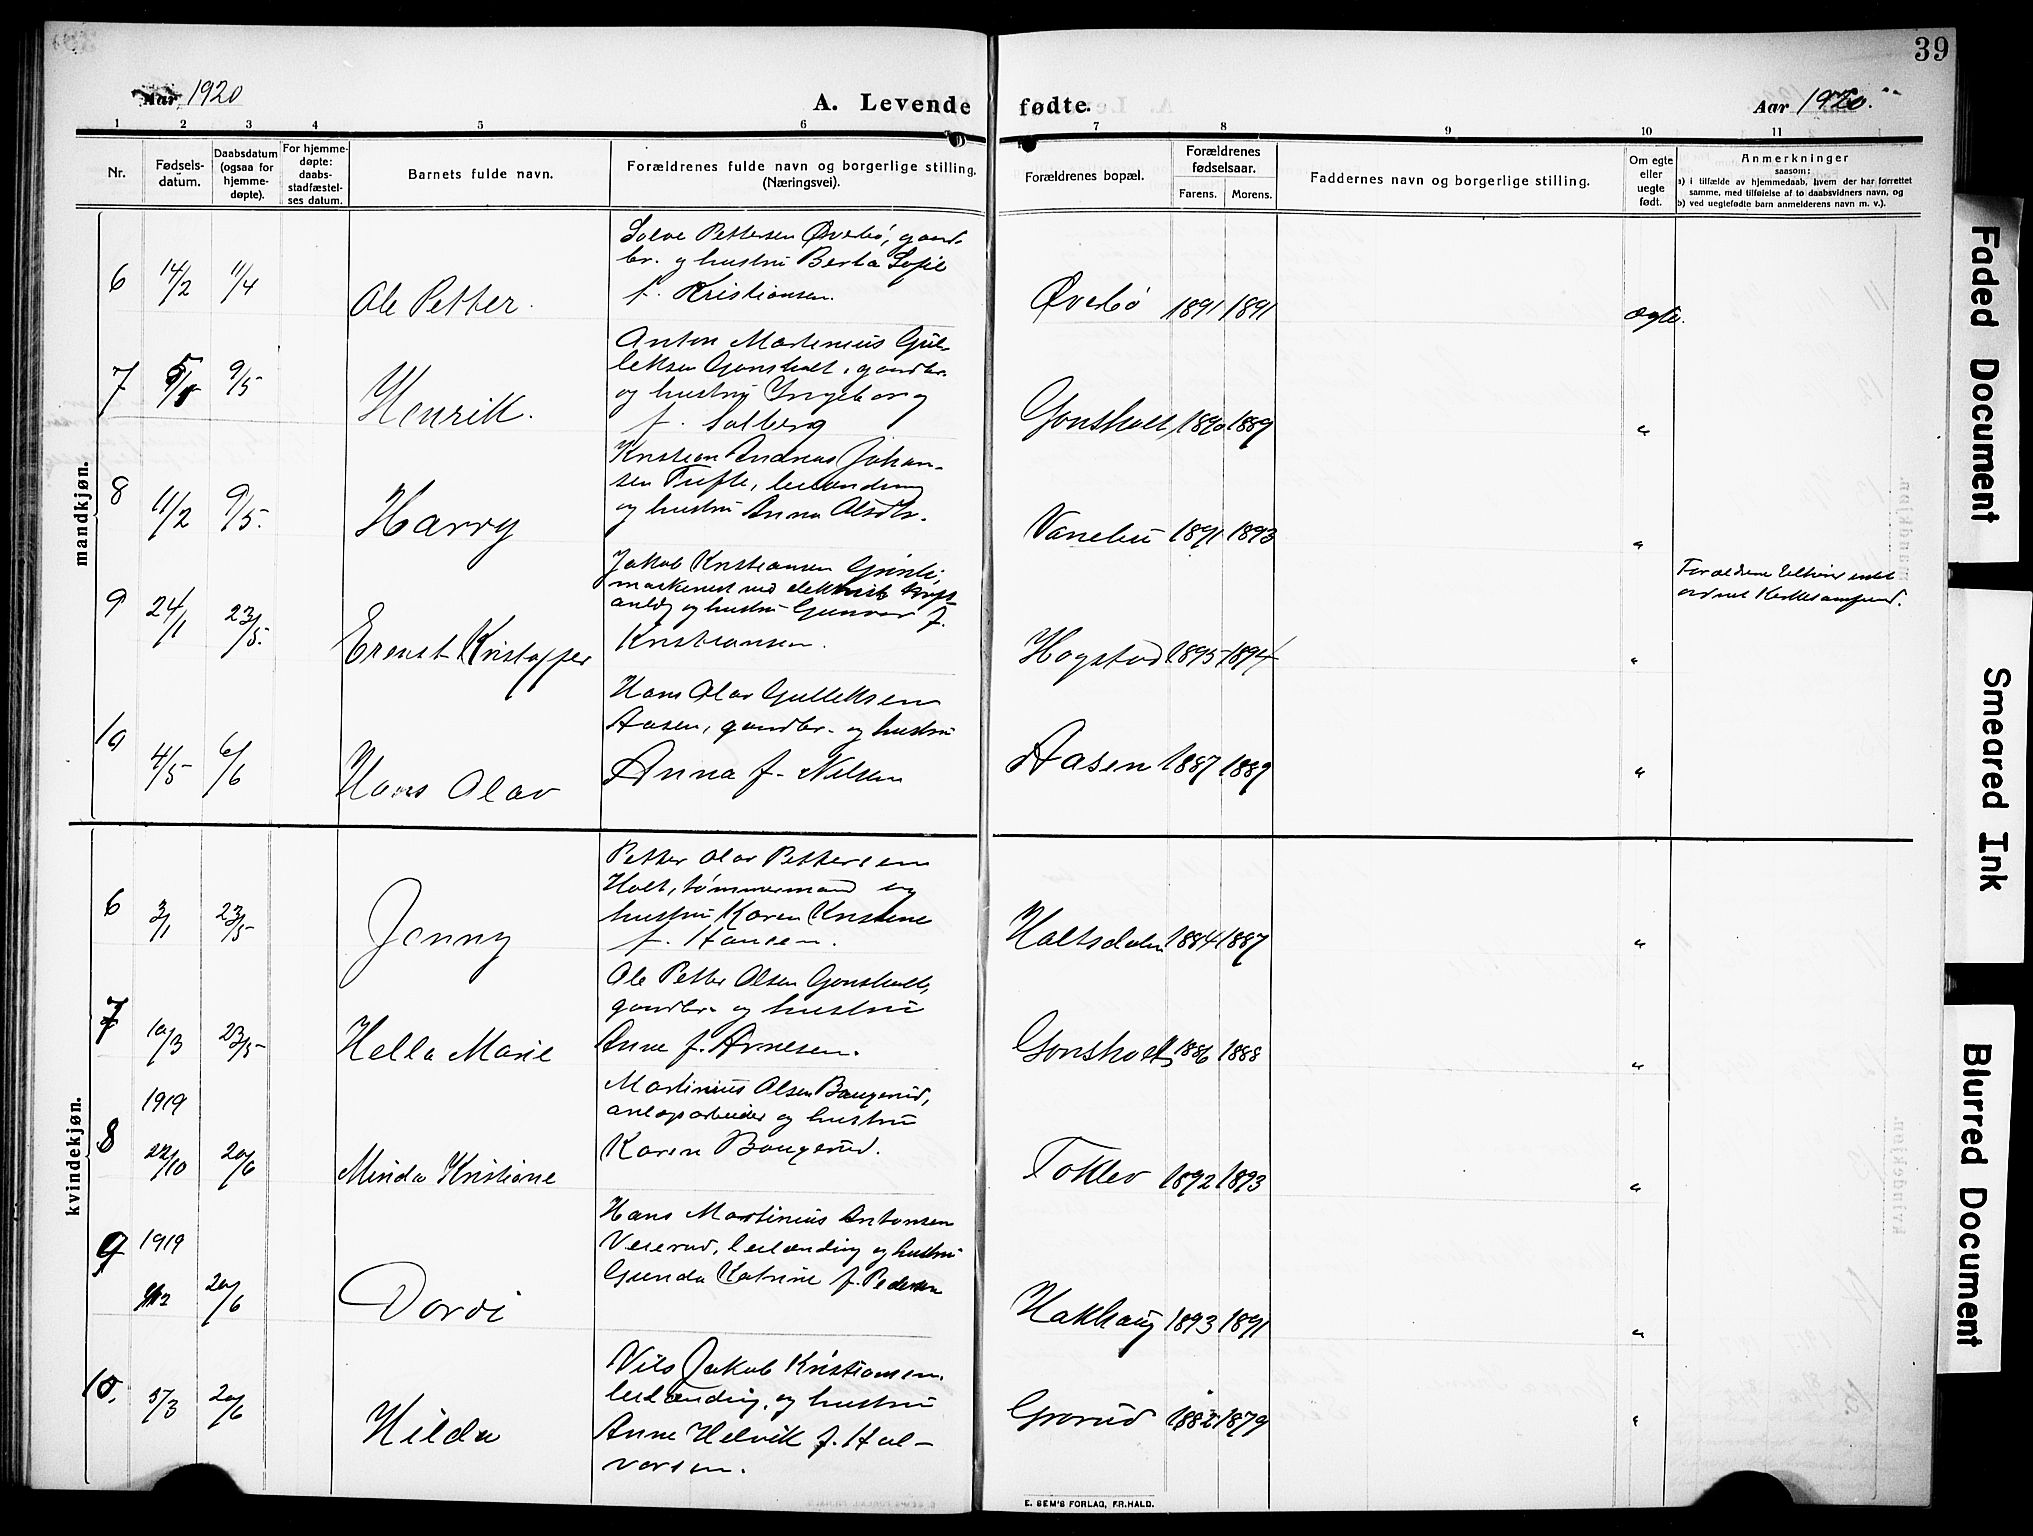 39
Aar 1920
A. Levende fødte.
Aar 1920.
1 2 3 4 5 6 7 8 9 10 11
Nr.
Fødsels-
datum.
Daabsdatum
(ogsaa for
hjemme-
døpte).
For hjemme-
døpte:
daabs-
stadfæstel-
ses datum.
Barnets fulde navn.
Forældrenes fulde navn og borgerlige stilling.
(Næringsvei).
Forældrenes bopæl.
Forældrenes
fødselsaar.
Farens. Morens.
Faddernes navn og borgerlige stilling.
Om egte
eller
uegte
født.
Anmerkninger
saasom:
a) i tilfælde av hjemmedaab, hvem der har forrettet
samme, med tilføielse af to daabsvidners navn, og
b) ved uegtefødte barn anmelderens navn m. v.).
mandkjøn.
6 14/2 11/4 Ole Petter.
Solve Pettersen Øvebø, gaard-
br. og hustru Berta Sofie
f. Kristiansen.
Øvebø 1891 1891 ægte.
7 9/5 Henrik.
Anton Martinius Gul-
leksen Gonsholt, gaardbr.
og hustru Ingeborg
f. Solberg
Gonsholt 1890 1889 "
8 11/2 9/5. Harry
Kristian Andreas Johan-
sen Tufte, leilænding
og hustru Anna Olsdtr.
Vanebu 1891 1893 "
9 24/1 23/5. Ernst Kristoffer
Jakob Kristiansen
maskinist ved elektrisk kraft-
anlæg og hustru Gunvor f.
Kristiansen.
Hogstad 1895 1894 "
Forældrene
10 4/5 6/6 Hans Olav
Hans Olav Gulleksen
Aasen, gaardbr. og hustru
Anna f. Nilsen
Aasen 1887 1889 "
kvindekjøn.
6 3/1 23/5 Jenny
Petter Olav Pettersen
Holt, tømmermand og
hustru Karen Kristine
f. Hansen.
Holtsdalen 1884 1887 "
7 10/3 23/5 Hella Marie
Ole Petter Olsen Gonsholt,
gaardbr. og hustru
Anne f. Arnesen.
Gonsholt 1886 1888 "
8 1919
22/10 20/6 Minda Kristiane
Martinius Olsen Baugerud,
anlægsarbeider og hustru
Karen Baugerud.
Toklev 1892 1893 "
9 1919
20/6 Dordi
Hans Martinius Antonsen
Veierud, leilænding og hustru
Gunda Katrine f. Pedersen
Hakhaug 1893 1891 "
10. 5/3 20/6 Hilda
Nils Jakob Kristiansen.
leilænding, og hustru
Anne Helvik f. Hal-
vorsen.
Grorud 1882 1879 "
E. SEM'S FORLAG, FR.HALD.
Faded Document
Smeared Ink
Blurred Document